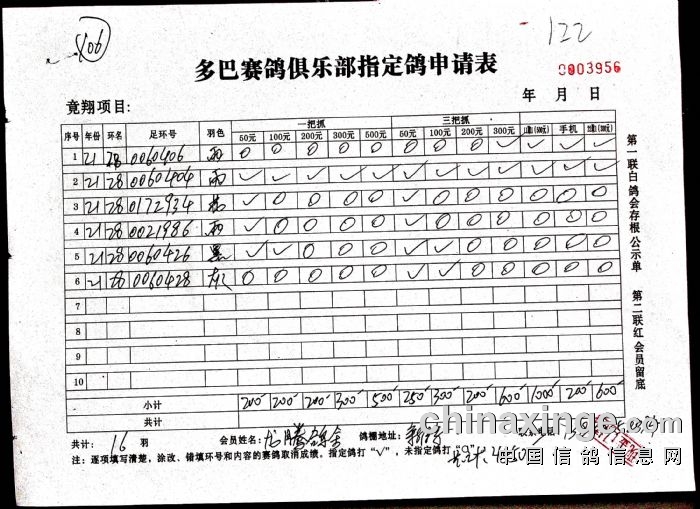 406
122
多巴赛鸽俱乐部指定鸽申请表
0003956
年 月 日
竟翔项目:
一把抓 三把抓
序号 年份 环名 足环号 羽色 50元 100元 200元 300元 500元 50元 100元 200元 300元 手机
1 21 28 0060406 雨 0 0 0 0 0 0 0 0 √ √ √ √
2 21 28 0060404 雨 √ √ √ √ √ √ √ √ √ √ √ √
3 21 28 0172934 √ 0 0 0 0 √ 0 0 0 0 0 0
4 21 28 0021986 雨 √ 0 0 0 0 √ 0 0 0 0 0 0
5 21 28 0060426 黑 √ √ 0 0 0 √ √ 0 0 0 0 0
6 21 28 0060428 灰 0 0 0 0 0 √ √ 0 0 0 0 0
7
8
9
10
小计 200 200 200 300 500 250 300 200 600 1000 200 600
共计
共计: 16 羽 会员姓名: 龙腾鸽舍 鸽棚地址:
注: 逐项填写清楚，涂改、错填环号和内容的赛鸽取消成绩。指定鸽打“√”，未指定鸽打“0”。
第一联白鸽会存根公示单 第二联红会员留底
chinaxinge.com
中国信鸽信息网